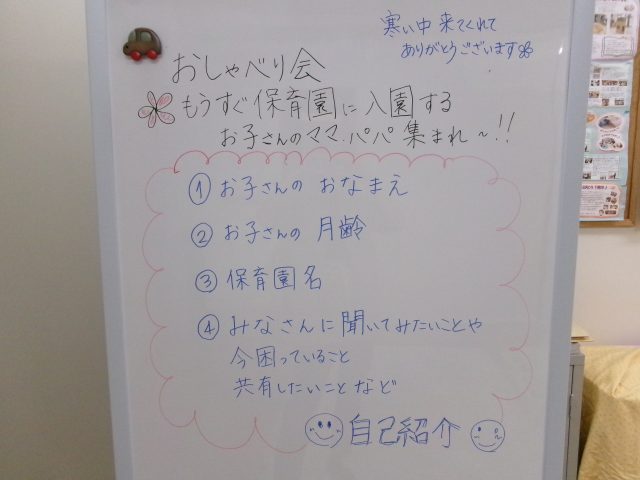 寒い中 来てくれて
ありがとうございます
おしゃべり会
もうすぐ保育園に入園する
お子さんのママ・パパ集まれ〜!!
① お子さんの おなまえ
② お子さんの 月齢
③ 保育園名
④ みなさんに聞いてみたいことや
今困っていること
共有したいことなど
自己紹介